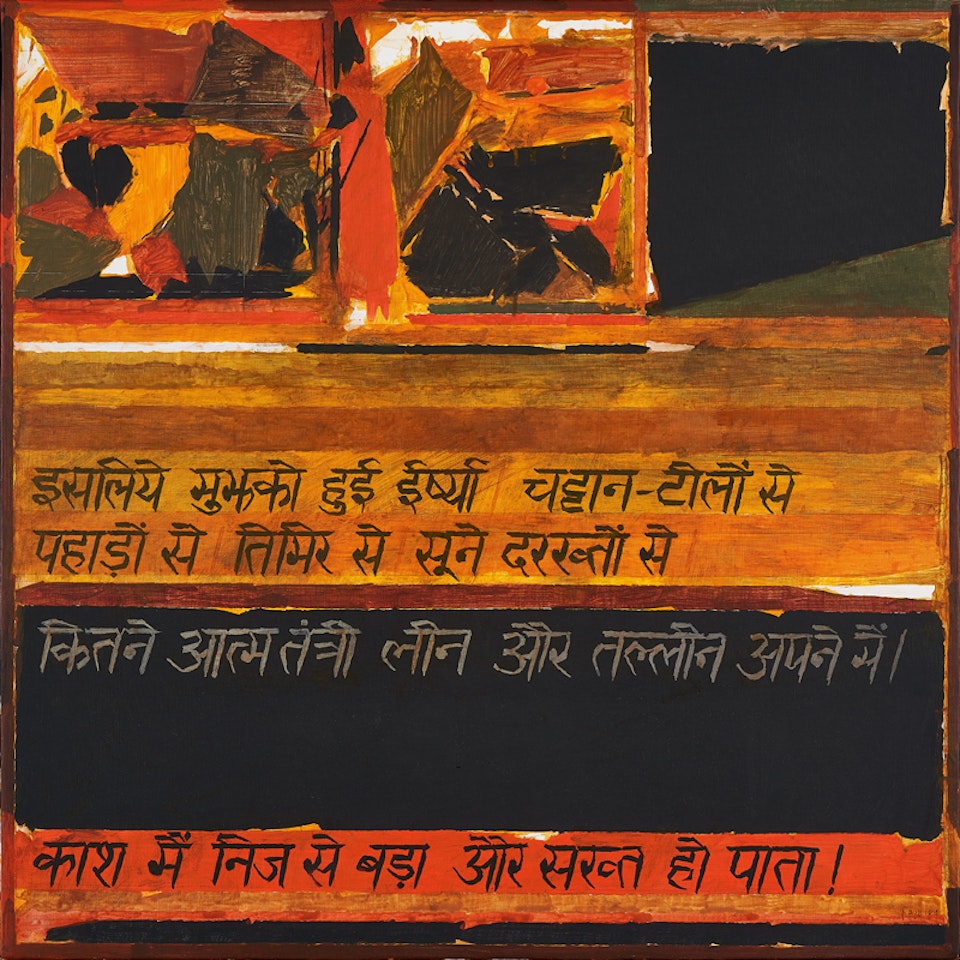 इसलिये मुझको हुई ईर्ष्या चट्टान-टीलों से
पहाड़ों से तिमिर से सूने दरख्तों से
कितने आत्म तंत्री लीन और तल्लीन अपने में।
काश मैं निज से बड़ा और सख्त हो पाता!